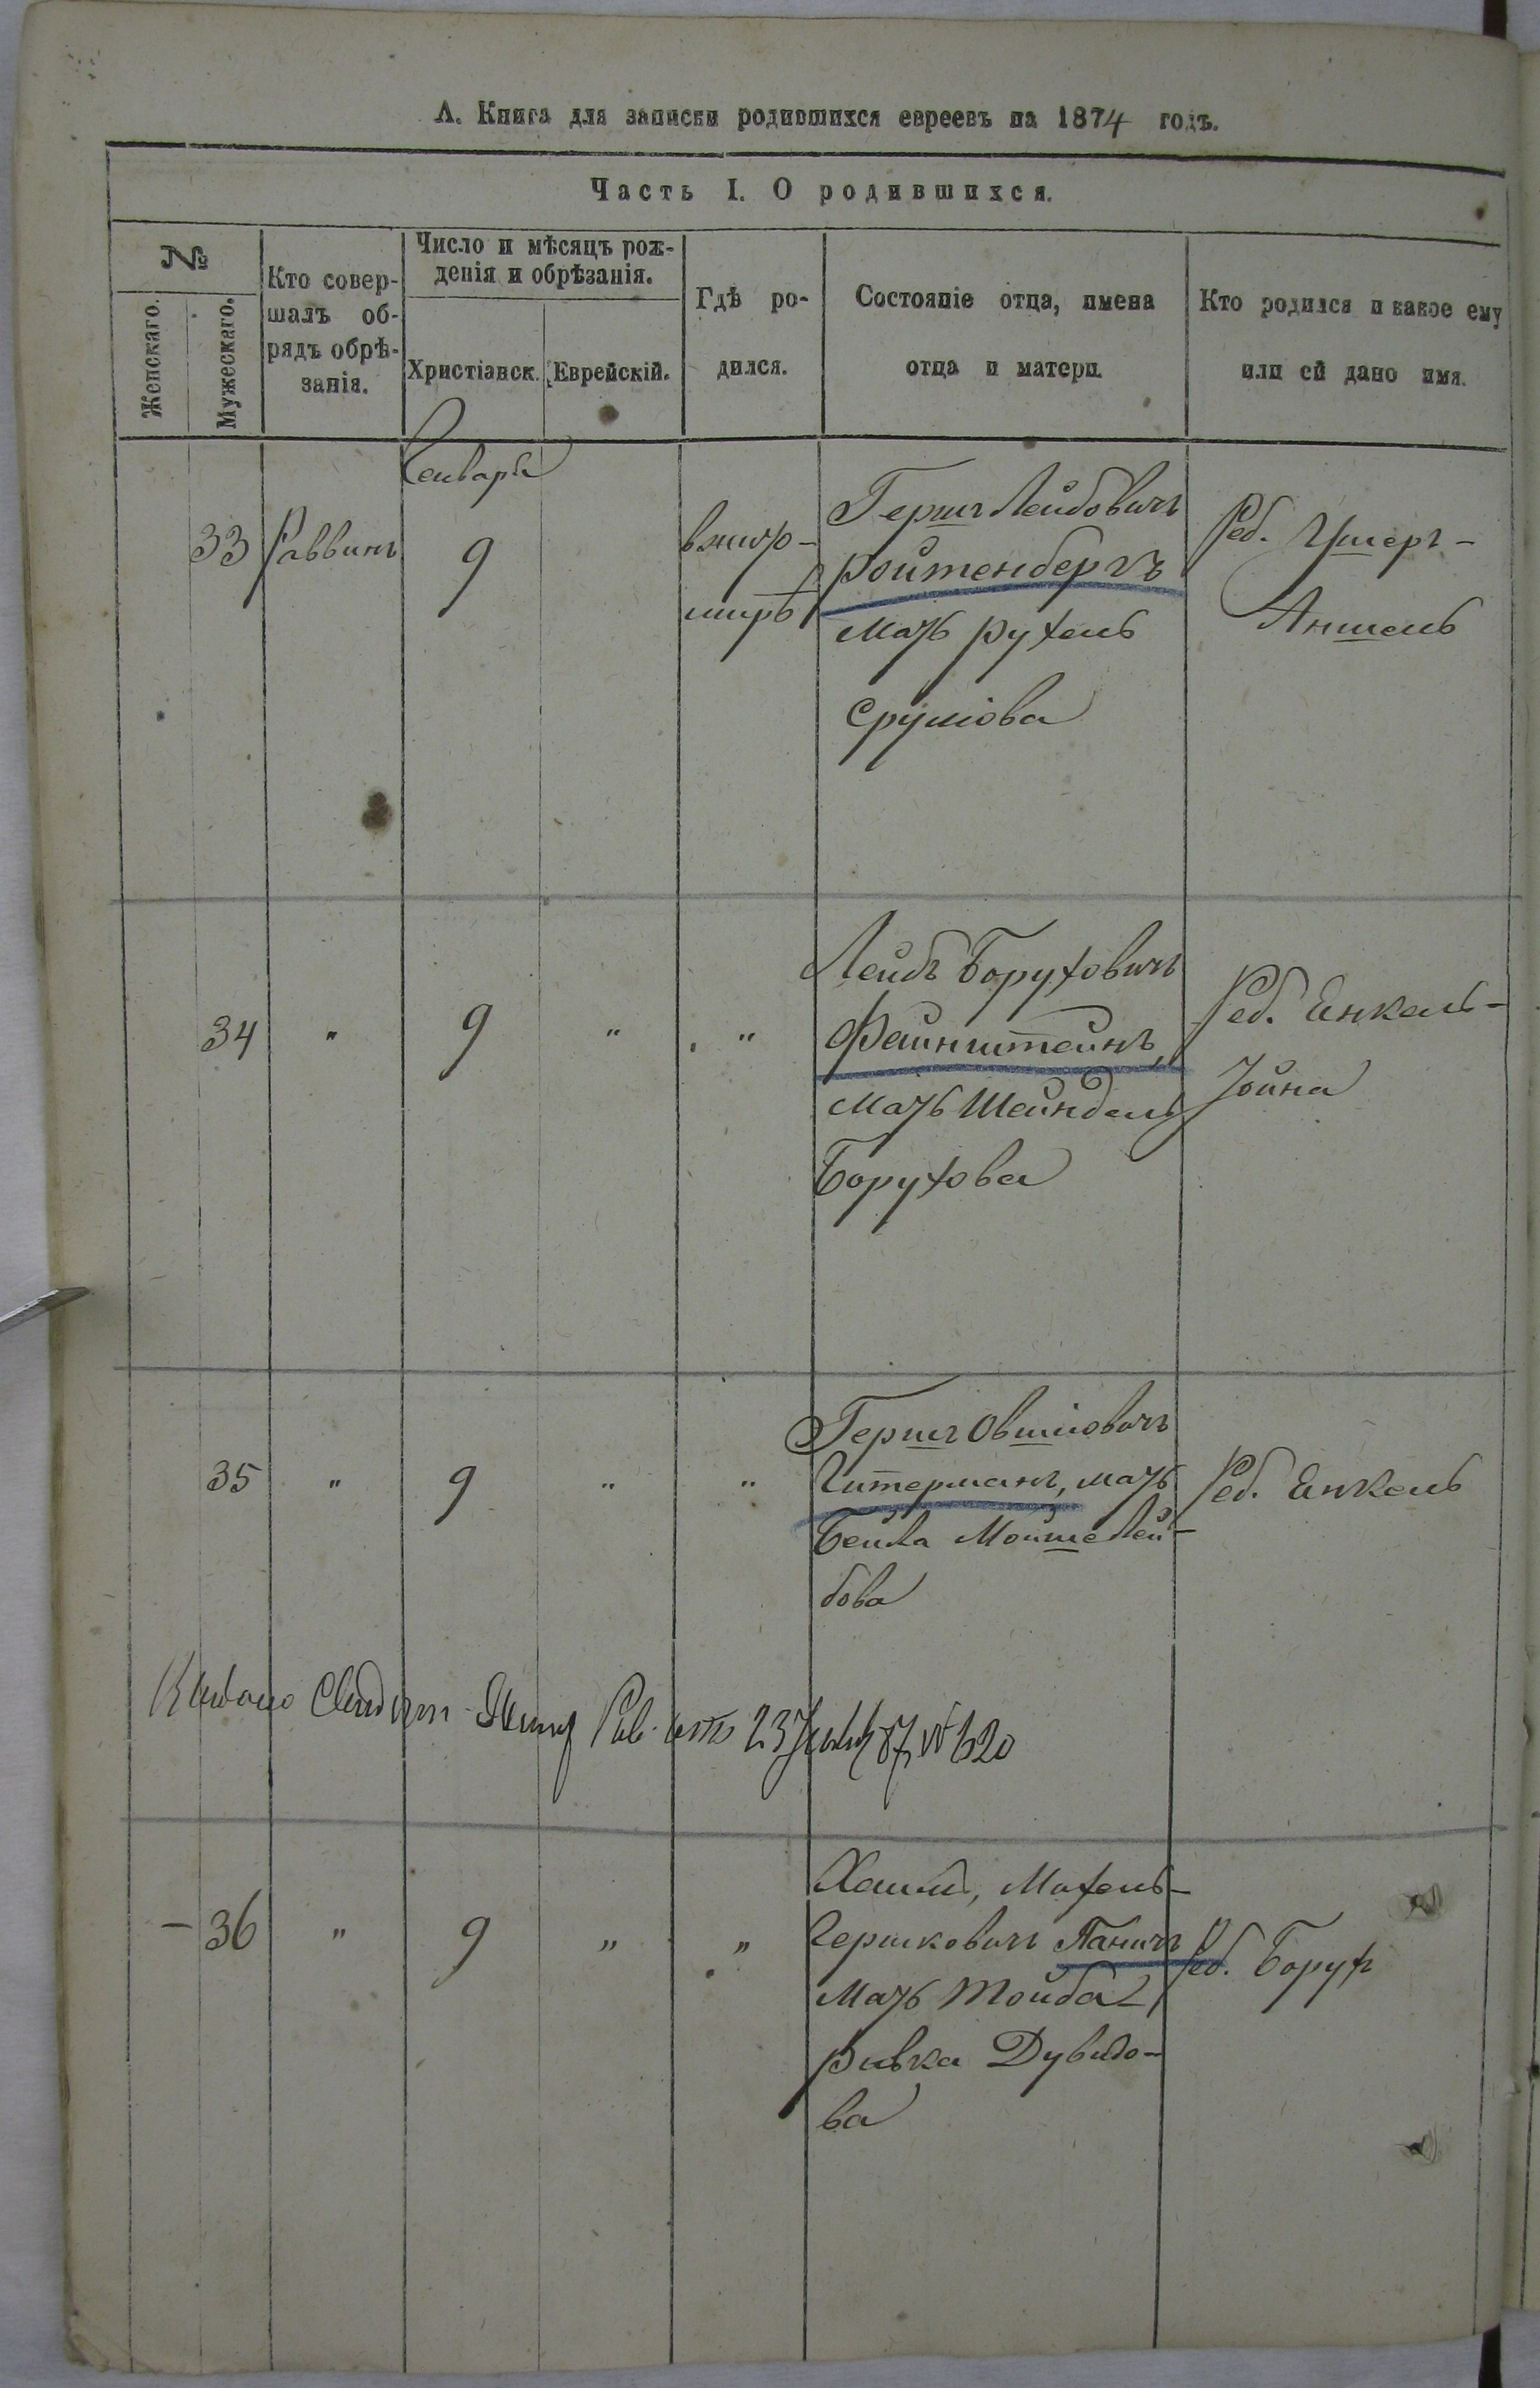 А. Книга для записки родившихся евреевъ на 1874 годъ.
Часть I. О родившихся.
№
Женскаго.
Мужескаго.
Кто совер-
шалъ об-
рядъ обрѣ-
занія.
Число и мѣсяцъ рож-
денія и обрѣзанія.
Христіанск.
Еврейскій.
Гдѣ ро-
дился.
Состояніе отца, имена
отца и матери.
Кто родился и какое ему
или ей дано имя.
Генваря
33
Раввинъ
9
вжито-
мирѣ
Гершъ Лейбовичъ
Ройтенбергъ
мать Рухель
Срулiова
Реб. Ушеръ-
Аншель
34
"
9
"
"
Лейбъ Боруховичъ
Файнштейнъ,
мать Шейндель
Борухова
Реб. Енкель-
Іойна
35
"
9
"
"
Гершъ Овшiовичъ
Читерманъ, мать
Бейла Мойшелей-
бова
Реб. Енкель
23 87 № 620
- 36
"
9
"
"
Хаимъ, Махель-
Гершковичъ Паничъ
мать Тойба
Ривка Дувидо-
ва
Реб. Борухъ